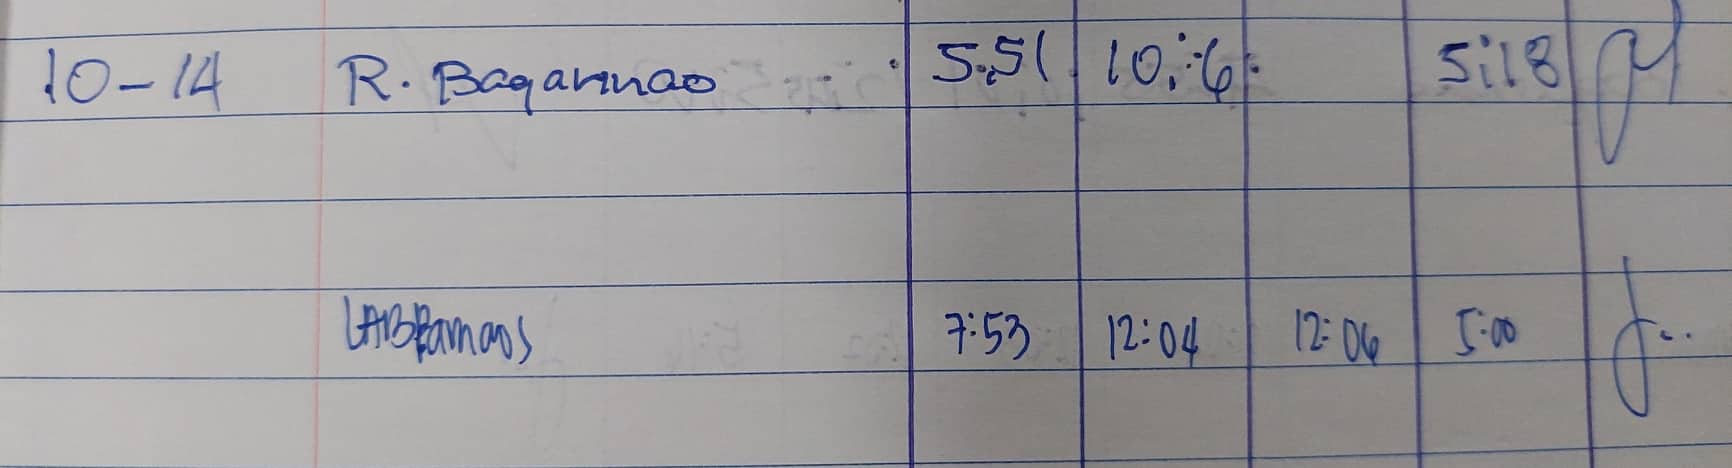 10-14 R. Bagarinao 5:51 10:16 5:18
7:53 12:04 12:06 5:00